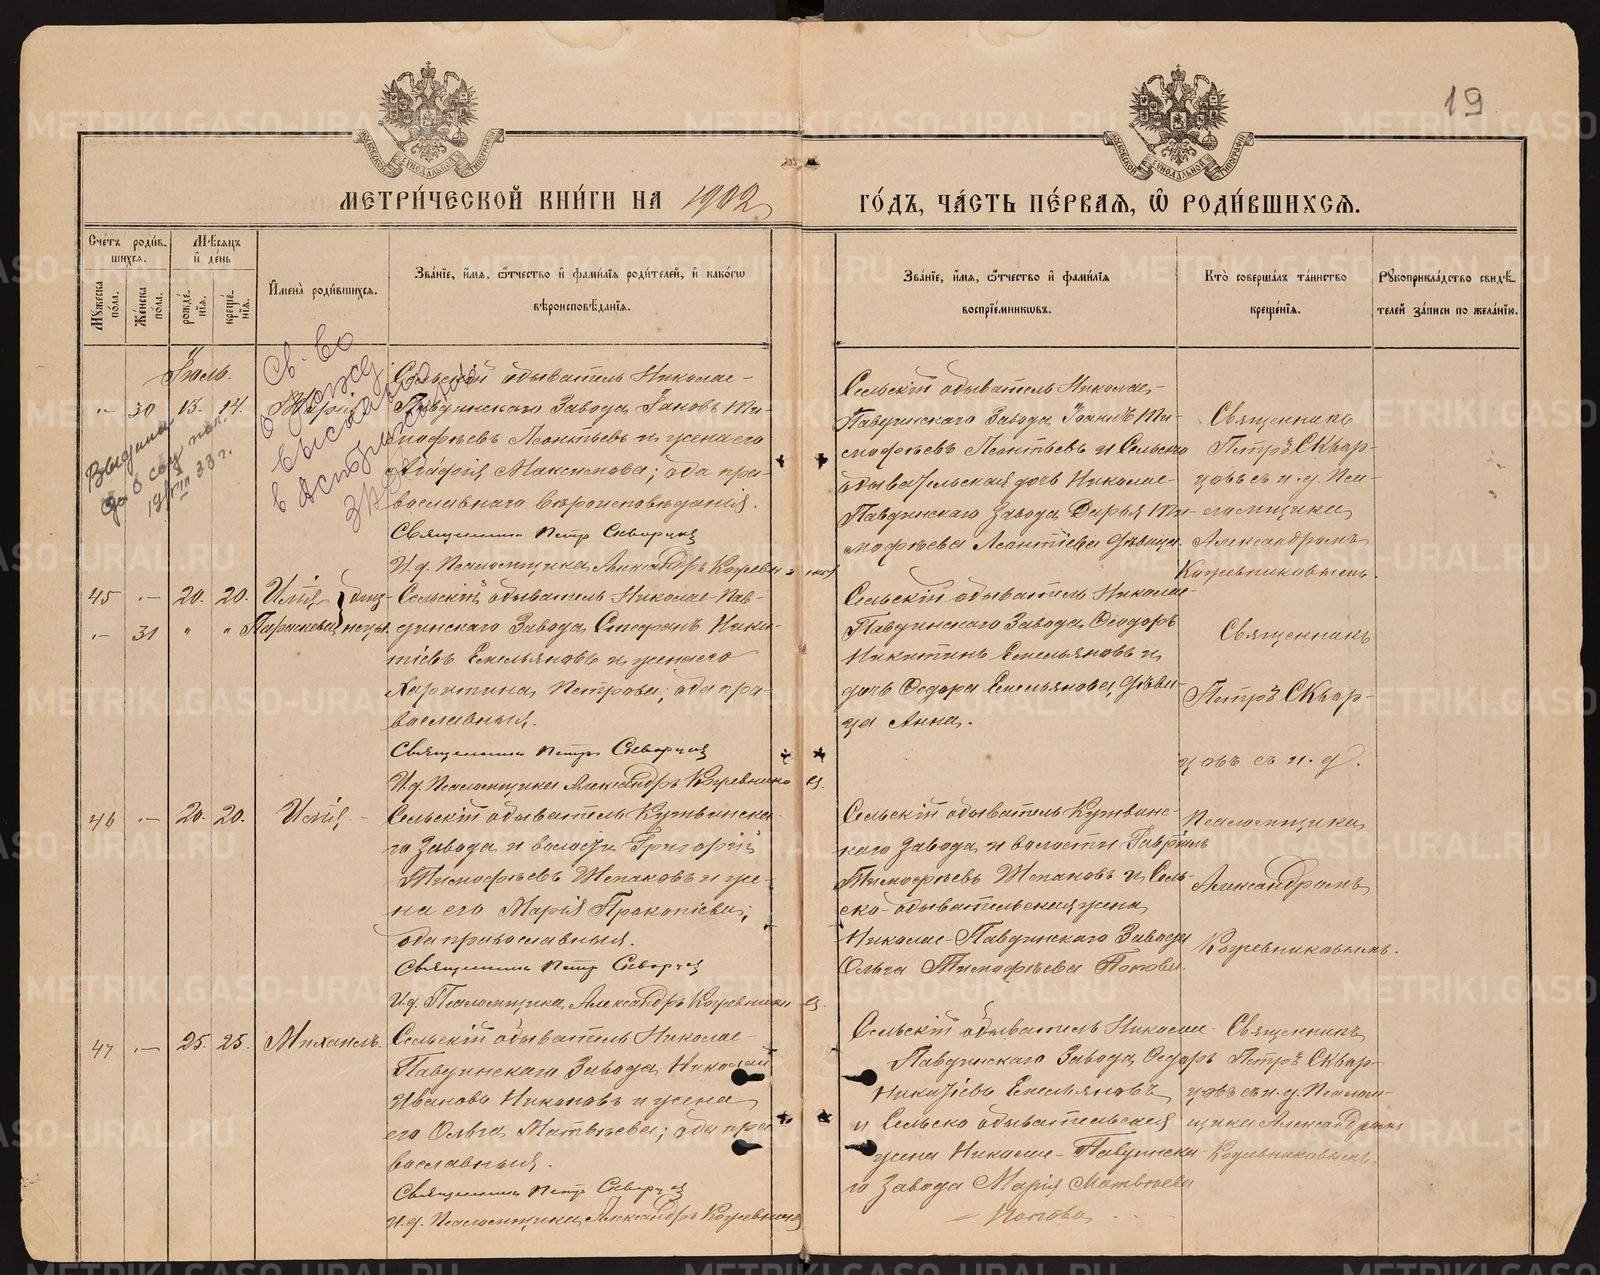 19
МЕТРИ́ЧЕСКОЙ КНИ́ГИ НА 1902
ГО́ДЪ, ЧА́СТЬ ПЕ́РВАѦ, Ѡ҆ РОДИ́ВШИХСѦ.
Сче́тъ роди́в-
шихсѧ.
Мꙋ́жеска по́ла.
Же́нска по́ла.
Мѣ́сѧцъ и҆ де́нь
рожде́-
нїѧ.
креще́-
нїѧ.
И҆мена̀ роди́вшихсѧ.
Зва́нїе, и҆́мѧ, ѻ҆́тчество и҆ фами́лїѧ роди́телей, и҆ како́гѡ
вѣроисповѣ́данїѧ.
Зва́нїе, и҆́мѧ, ѻ҆́тчество и҆ фами́лїѧ
воспрїе́мникѡвъ.
Кто̀ соверша́лъ та́инство
креще́нїѧ.
Рꙋкоприкла́дство свидѣ́-
телей за́писи по жела́нїю.
Іюль.
30 13. 14. Марія
Сельскій обыватель Николае-
Павдинскаго Завода Іаковъ Ти-
мофѣевъ Леонтьевъ и жена его
Агафія Максимова; оба пра-
вославнаго вѣроисповѣданія.
Священникъ Петръ Скворцов
И. д. Псаломщика Александръ Кожевников
Сельскій обыватель Николае-
Павдинскаго Завода Іоаннъ Ти-
мофѣевъ Леонтьевъ и Сельско
обывательская дочь Николае-
Павдинскаго Завода Дарья Ти-
мофѣева Леонтіева дѣвица.
Священникъ
Петръ Сквор-
цовъ съ и. д. Пса-
ломщика
Александромъ
Кожевниковымъ.
Выдана
19/VIII 33 г.
Св-во
45 20. 20. Илія } близ-
31 " " Параскева } нецы.
Сельскій обыватель Николае-Пав-
динскаго Завода Стефанъ Ники-
тіевъ Емельяновъ и жена его
Харитина Петрова; оба пра-
вославныя.
Священникъ Петръ Скворцов
И. д. Псаломщика Александръ Кожевников
Сельскій обыватель Николае-
Павдинскаго Завода Ѳеодоръ
Никитинъ Емельяновъ и
дочь Ѳедора Емельянова дѣви-
ца Анна.
Священникъ
Петръ Сквор-
цовъ съ и. д.
46 20. 20. Илія.
Сельскій обыватель Кушвинска-
го Завода и волости Григорій
Тимофѣевъ Шпаковъ и же-
на его Марія Прокопіева;
оба православныя.
Священникъ Петръ Скворцов
И. д. Псаломщика Александръ Кожевников
Сельскій обыватель Кушвинс-
каго Завода и волости Гавріилъ
Тимофѣевъ Шпаковъ и Сель-
ско-обывательская жена
Николае-Павдинскаго Завода
Ольга Тимофѣева Попова.
Псаломщика
Александромъ
Кожевниковымъ.
47 25. 25. Михаилъ.
Сельскій обыватель Николае-
Павдинскаго Завода Николай
Ивановъ Никоновъ и жена
его Ольга Матвѣева; оба пра
вославныя.
Священникъ Петръ Скворцов
И. д. Псаломщика Александръ Кожевников
Сельскій обыватель Николае-
Павдинскаго Завода Ѳедоръ
Никитіевъ Емельяновъ
и Сельско обывательская
жена Николае-Павдинска-
го Завода Марія Матвѣева
Попова
Священникъ
Петръ Сквор-
цовъ съ и. д. Псалом-
щика Александромъ
Кожевниковымъ.
METRIKI.GASO-URAL.RU